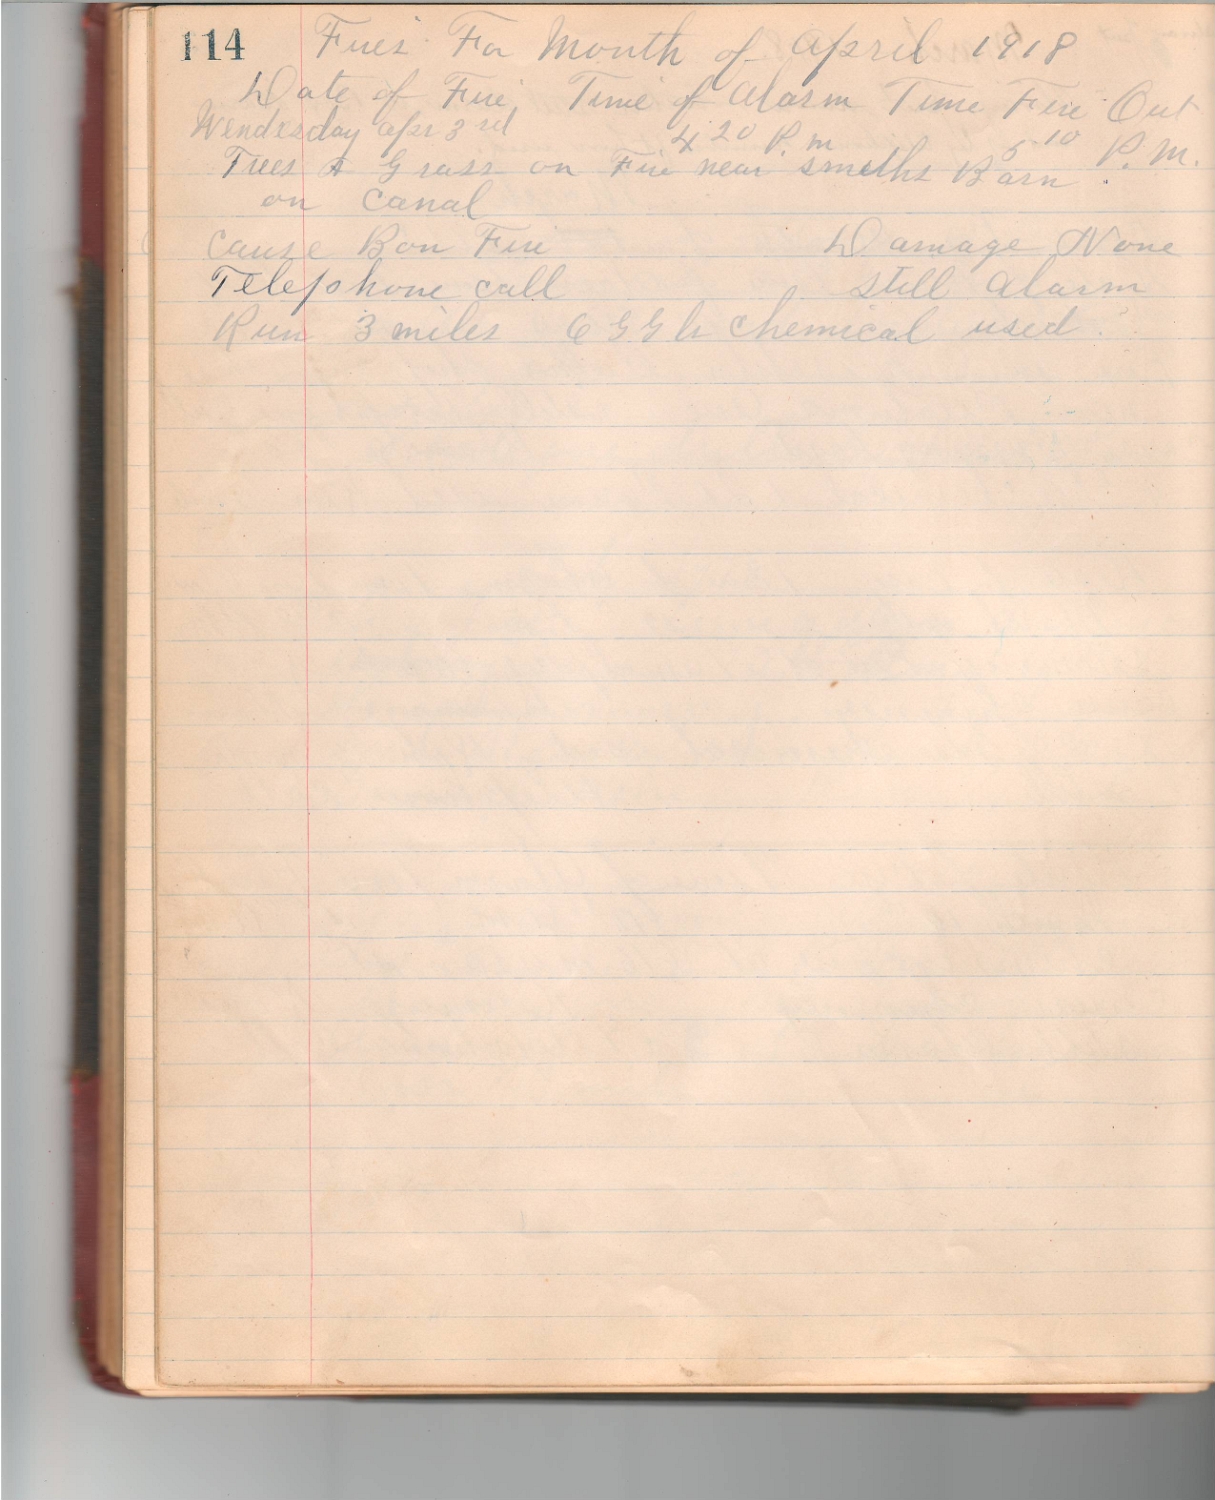 114 Fires For Month of April 1918
Date of Fire, Time of Alarm Time Fire Out
Wendesday Apr 3rd 4 20 P. m 5 10 P. M.
Trees & Grass on Fire near Smiths Barn
on Canal
Cause Bon Fire Damage None
Telephone call Still Alarm
Run 3 miles 6 chemical used